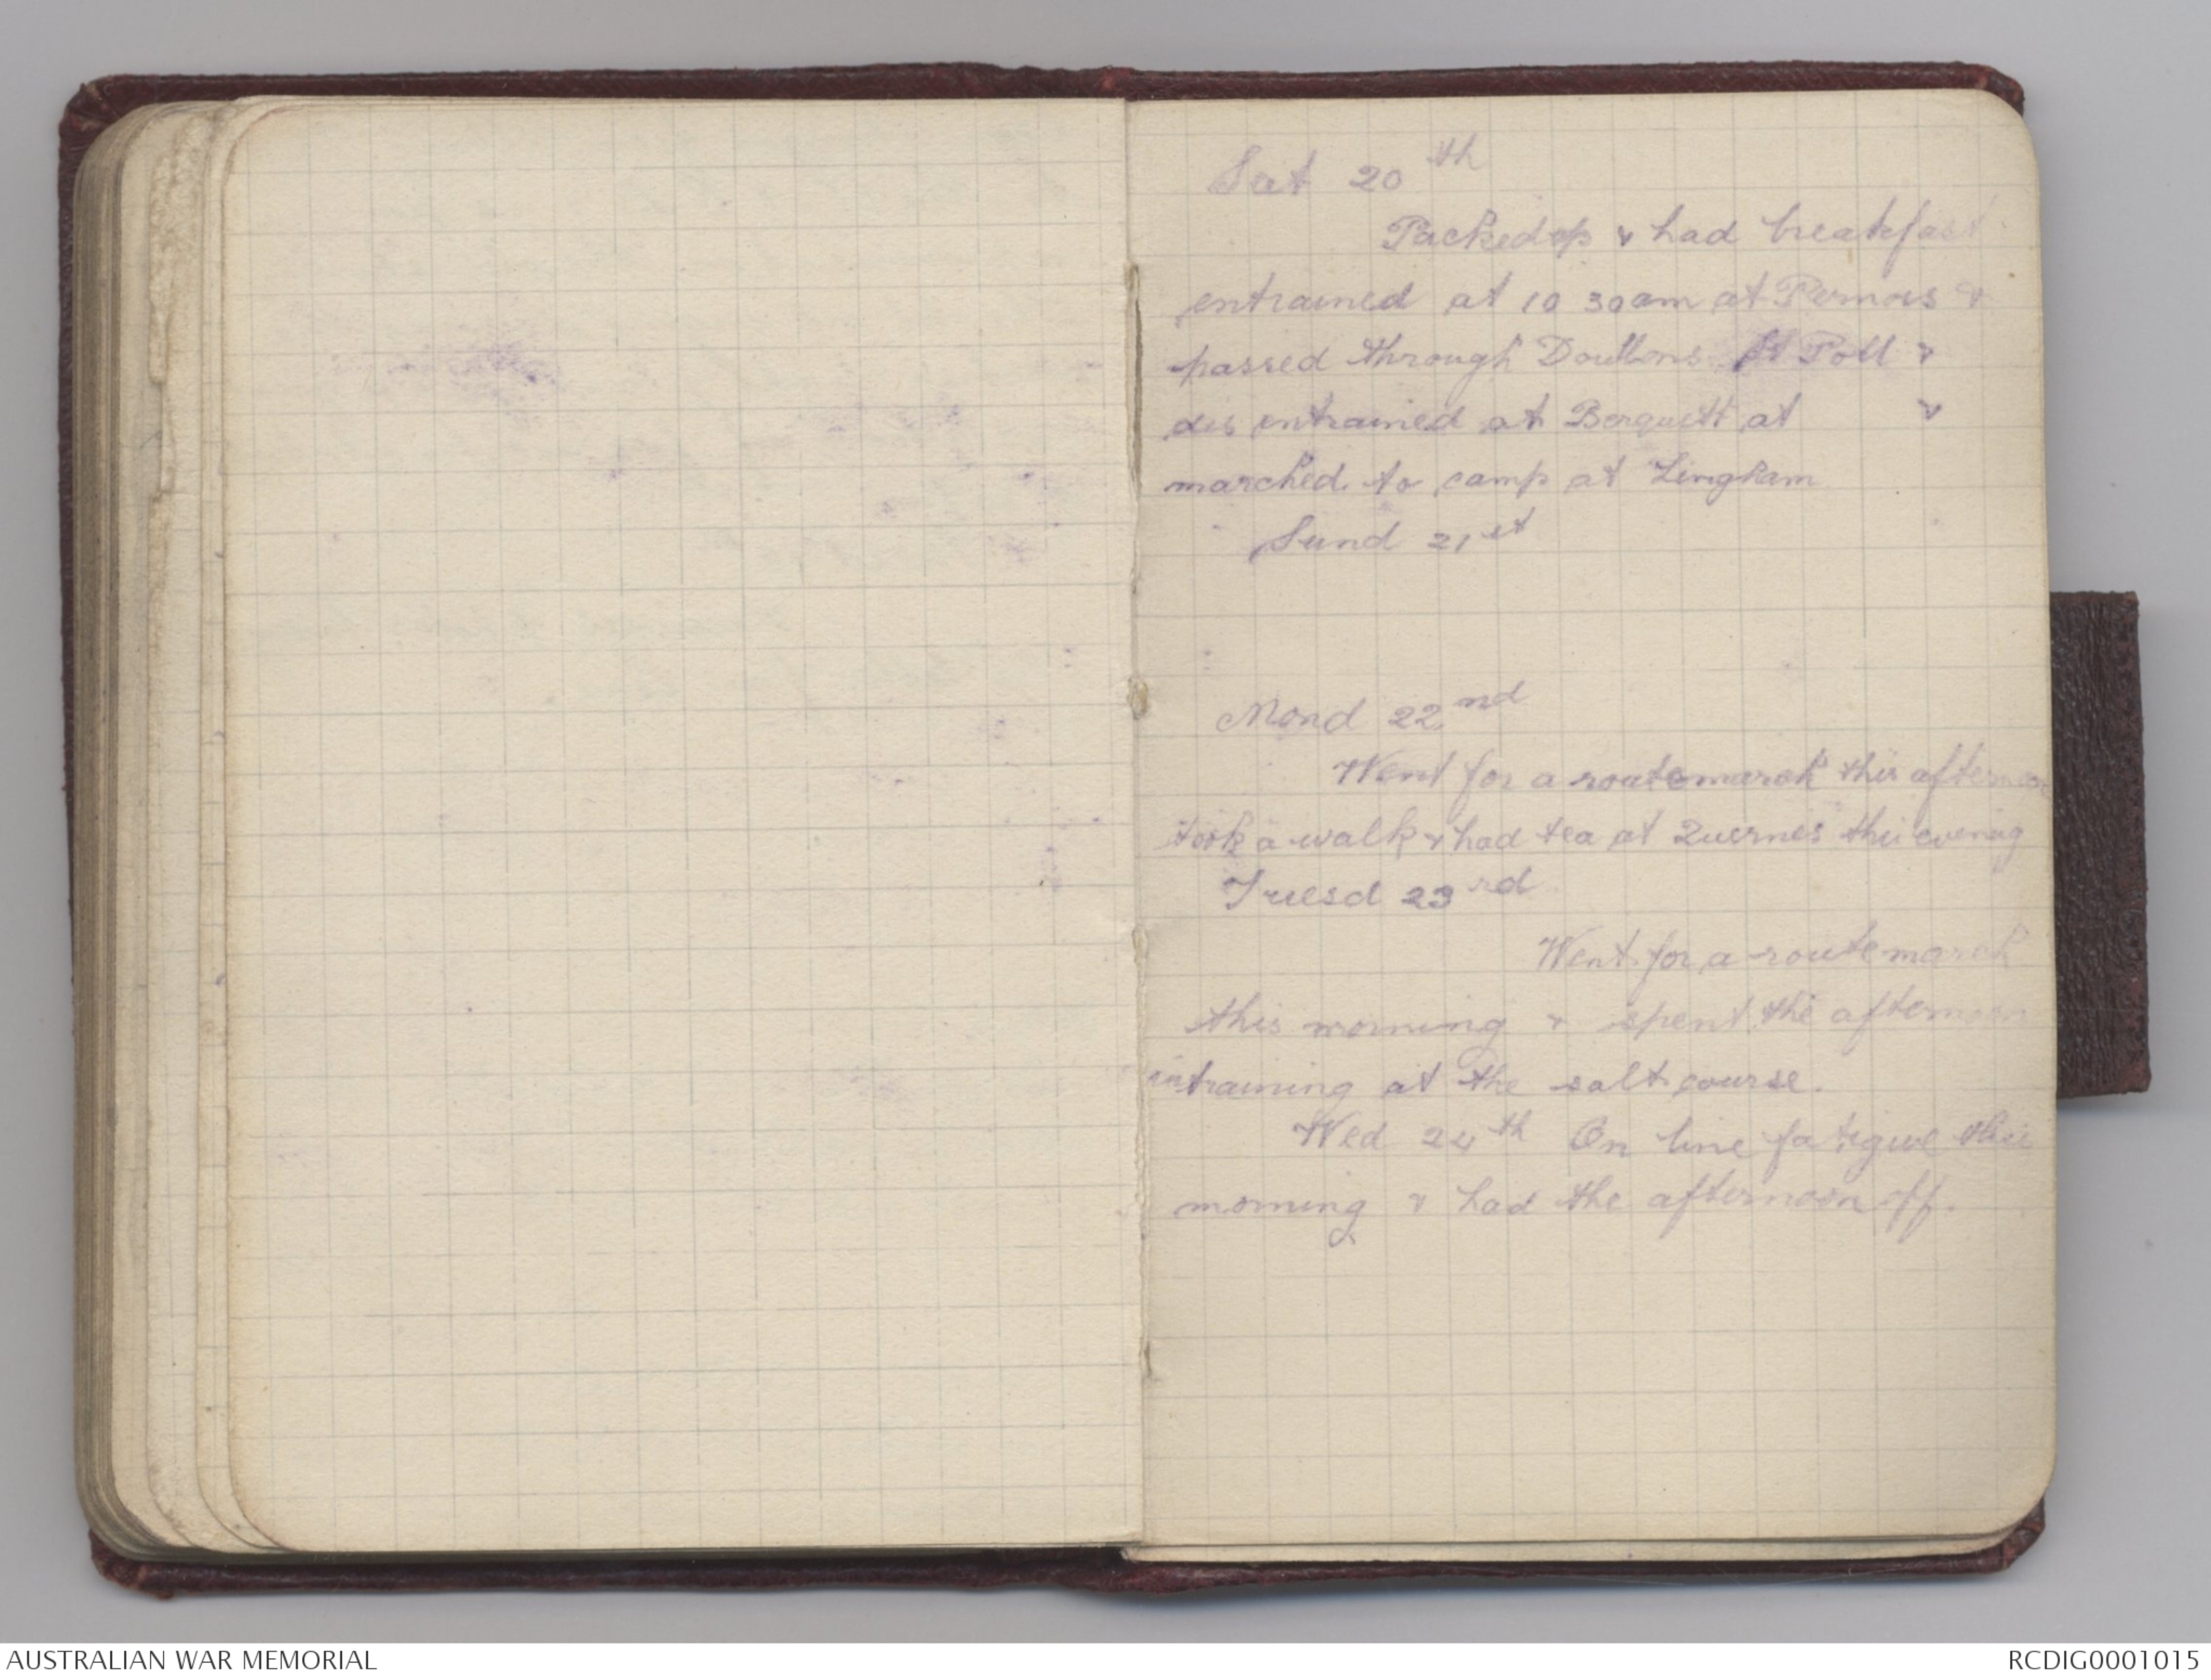 Sat 20th
Packed up & had breakfast
entrained at 10 30am at Pernois &
passed through Doullons St Poll &
dis entrained at Berquett at &
marched to camp at Lingham
Sund 21st
Mond 22nd
Went for a route march this afternoon
took a walk & had tea at Quernes this evening
Tuesd 23rd
Went for a route march
this morning & spent the afternoon
in training at the salt course.
Wed 24th On line fatigue this
morning & had the afternoon off.
AUSTRALIAN WAR MEMORIAL
RCDIG0001015